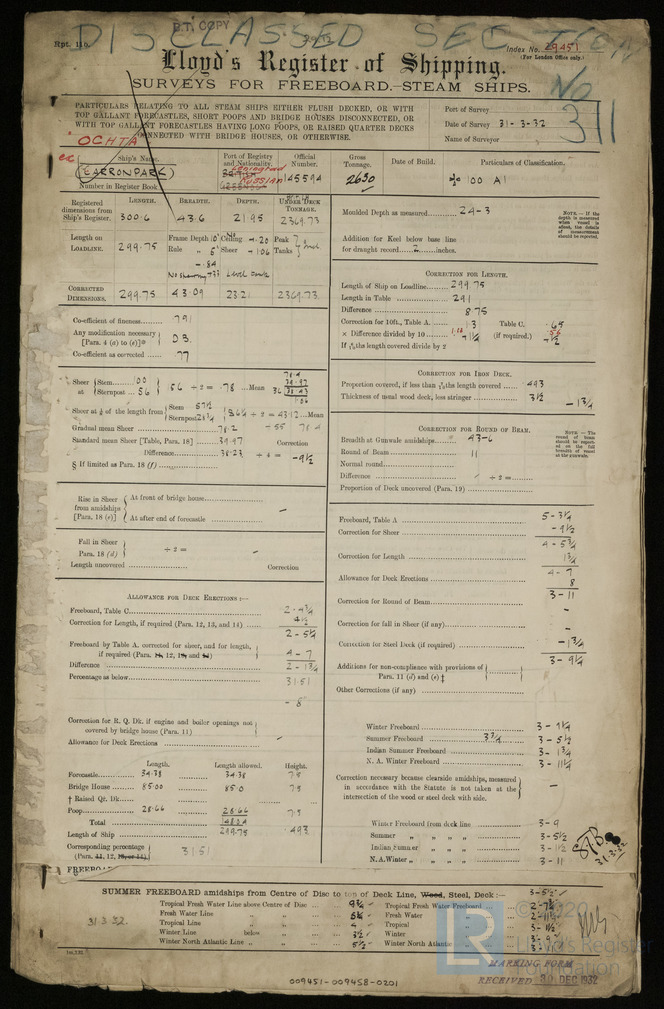 B.T. COPY
DISCLASSED SECTION
No 311
Rpt. 11b.
Index No. 29451
(For London Office only.)
Lloyd's Register of Shipping.
SURVEYS FOR FREEBOARD.—STEAM SHIPS.
PARTICULARS RELATING TO ALL STEAM SHIPS EITHER FLUSH DECKED, OR WITH
TOP GALLANT FORECASTLES, SHORT POOPS AND BRIDGE HOUSES DISCONNECTED, OR
WITH TOP GALLANT FORECASTLES HAVING LONG POOPS, OR RAISED QUARTER DECKS
CONNECTED WITH BRIDGE HOUSES, OR OTHERWISE.
Port of Survey
Date of Survey 31-3-32
Name of Surveyor
OCHTA
Ship's Name.
(EARRONPARK)
Number in Register Book
Port of Registry and Nationality.
Leningrad
RUSSIAN
Official Number.
145594
Gross Tonnage.
2630
Date of Build.
Particulars of Classification.
100 A1
Registered dimensions from Ship's Register.
LENGTH. 300.6
BREADTH. 43.6
DEPTH. 21.95
UNDER DECK TONNAGE. 2369.73
Length on LOADLINE. 299.75
Frame Depth 10" Ceiling + .20 Peak
Rule " 5" Sheer + 1.06 Tanks
- .84
CORRECTED DIMENSIONS. 299.75 43.09 23.21 2369.73
Moulded Depth as measured 24-3
NOTE.—If the depth is measured when vessel is afloat, the details of measurement should be reported.
Addition for Keel below base line
for draught record 2 inches.
CORRECTION FOR LENGTH.
Length of Ship on Loadline 299.75
Length in Table 291
Difference 8.75
Correction for 10ft., Table A. 1.3 Table C. .65
× Difference divided by 10 (if required.)
If 6/10ths length covered divide by 2
Co-efficient of fineness .791
Any modification necessary [Para. 4 (a) to (e)] D.B.
Co-efficient as corrected .77
CORRECTION FOR IRON DECK.
Proportion covered, if less than 7/10ths length covered .493
Thickness of usual wood deck, less stringer 3½
- 1¾
Sheer at { Stem 100
Sternpost 56 } 156 ÷ 2 = 78 Mean
Sheer at ⅛ of the length from { Stem 57½
Sternpost 28¾ } 86¼ ÷ 2 = 43.12 Mean
Gradual mean Sheer 78.2 78.4
Standard mean Sheer [Table, Para. 18] 39.97 Correction
Difference 38.23 ÷ 4 = -9½
§ If limited as Para. 18 (f)
CORRECTION FOR ROUND OF BEAM.
Breadth at Gunwale amidships 43-6
Round of Beam 11
Normal round
Difference ÷ 2 =
Proportion of Deck uncovered (Para. 19)
NOTE.—The round of beam should be reported on the full breadth of vessel at the gunwale.
Rise in Sheer from amidships [Para. 18 (e)] { At front of bridge house
At after end of forecastle -
Fall in Sheer Para. 18 (d) } ÷ 2 = -
Length uncovered Correction
Freeboard, Table A 5-3¼
Correction for Sheer - 9½
4-5¾
Correction for Length 1¼
4-7
Allowance for Deck Erections 8
3-11
Correction for Round of Beam -
Correction for fall in Sheer (if any) -
Correction for Steel Deck (if required) - 1¾
3-9¼
Additions for non-compliance with provisions of Para. 11 (d) and (e) ‡
Other Corrections (if any)
ALLOWANCE FOR DECK ERECTIONS:—
Freeboard, Table C 2-4¾
Correction for Length, if required (Para. 12, 13, and 14) ½
2-5¼
Freeboard by Table A. corrected for sheer, and for length, if required (Para. 11, 12, 13, and 14) 4-7
Difference 2-1¾
Percentage as below 31.51
- 8"
Correction for R. Q. Dk. if engine and boiler openings not covered by bridge house (Para. 11)
Allowance for Deck Erections -
Length. Length allowed. Height.
Forecastle 34.38 34.38 7.5
Bridge House 85.00 85.0 7.5
† Raised Qr. Dk.
Poop 28.66 28.66 7.5
Total 148.04
Length of Ship 299.75 .493
Corresponding percentage (Para. 11, 12, 13, or 14) } 31.51
Winter Freeboard 3-9¼
Summer Freeboard 3¾ 3-5½
Indian Summer Freeboard 3-1¾
N. A. Winter Freeboard 3-11¼
Correction necessary because clearside amidships, measured in accordance with the Statute is not taken at the intersection of the wood or steel deck with side. -
Winter Freeboard from deck line 3-9
Summer " " " " 3-5½
Indian Summer " " " 3-1½
N. A. Winter " " " " 3-11
31-3-32
FREEBOARD
SUMMER FREEBOARD amidships from Centre of Disc to top of Deck Line, Wood, Steel, Deck:— 3-5½
31.3.32
Tropical Fresh Water Line above Centre of Disc 9¾ Tropical Fresh Water Freeboard
Fresh Water Line " " Fresh Water "
Tropical Line " " 4 Tropical " 3-1½
Winter Line below " 3½ Winter " 3-9
Winter North Atlantic Line " " 5½ Winter North Atlantic "
© 2020
Lloyd's Register
Foundation
LR
MARKING FORM
RECEIVED 30 DEC 1932
009451-009458-0201